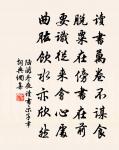 讀書萬卷不謀食
脫粟在傍書在前
要識從來會心處
曲肱飲水亦欣然
陸游冬夜讀書示子聿
詞典網集